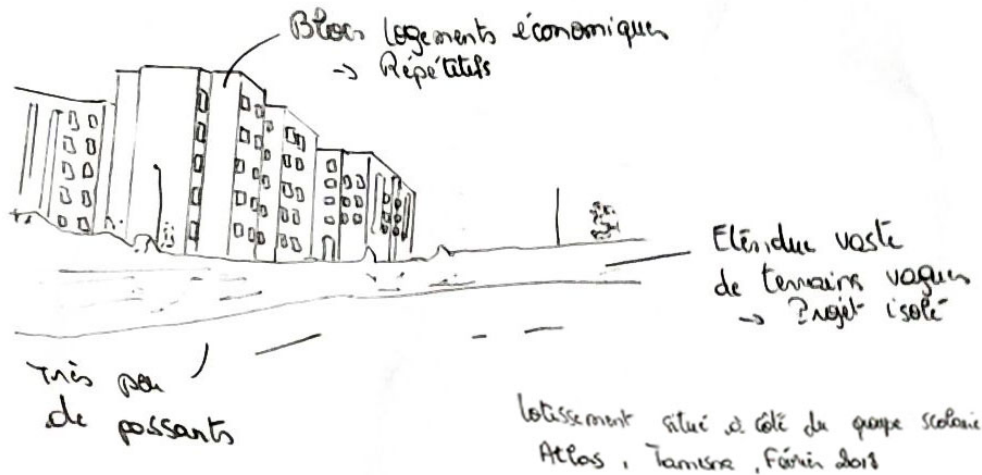 Blocs logements économiques
→ Répétitifs
Etendue vaste
de terrains vagues
→ Projet isolé
Très peu
de passants
Lotissement situé à côté du groupe scolaire
Atlas, Tamesna, Février 2018